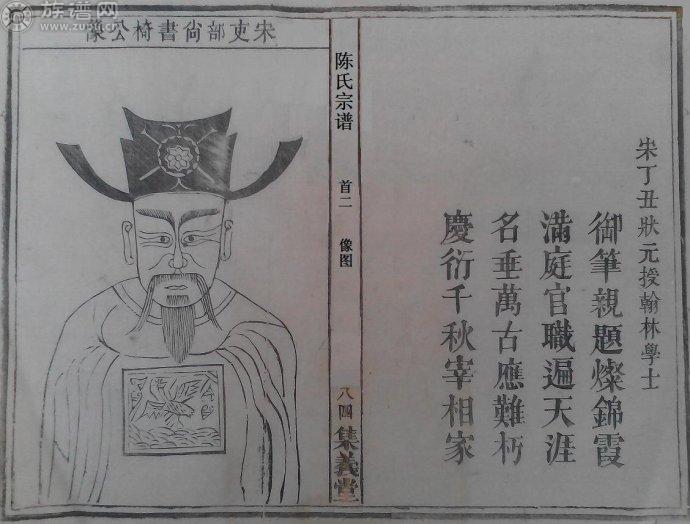 宋丁丑狀元授翰林學士
御筆親題燦錦霞
滿庭官職遍天涯
名垂萬古應難朽
慶衍千秋宰相家
陈氏宗谱
首二
像图
八四
集義堂
宋吏部尙書椅公像
族谱网
www.zupu.cn